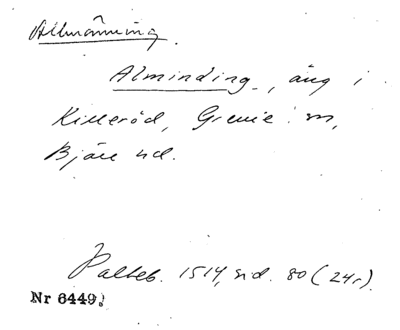 Allmänning.
Alminding, äng i
Killeröd, Grevie sn,
Bjäre hd.
Palteb. 1514, sid. 80 (24r).
Nr 6449.